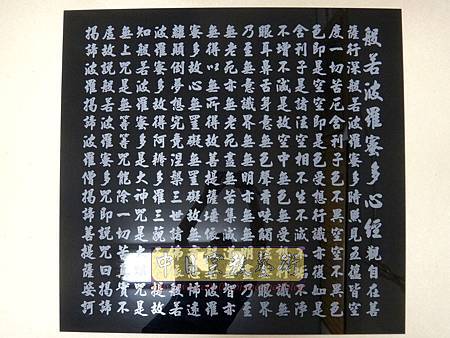 般若波羅蜜多心經觀自在菩
薩行深般若波羅蜜多時照見五蘊皆空
度一切苦厄舍利子色不異空空不異色
色即是空空即是色受想行識亦復如是
舍利子是諸法空相不生不滅不淨
不增不減是故空中無色無受識無
眼耳鼻舌身意無色聲香味觸眼界
乃至無意識界無無明亦無無明乃至
無老死亦無老死盡無苦集滅智亦
無得以無所得故菩提薩埵依波羅
蜜多故心無罣礙無罣礙故無怖遠
離顛倒夢想究竟涅槃三世諸般若
波羅蜜多故得阿耨多羅三藐提故
知般若波羅蜜多是大神咒是咒是
無上咒是無等等咒能除一切實不
虛故說般若波羅蜜多咒即說咒曰揭諦
揭諦波羅揭諦波羅僧揭諦菩提薩婆訶